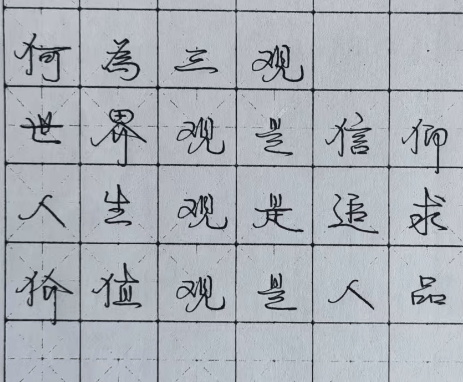 何為三观
世界观是信仰
人生观是追求
价值观是人品